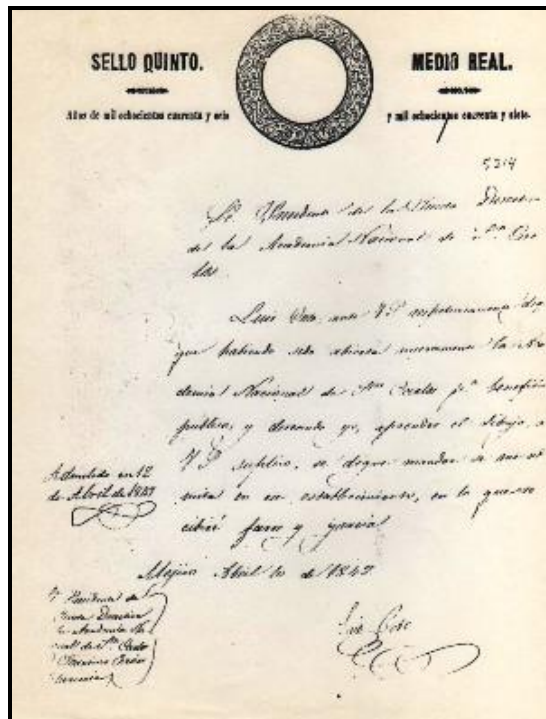 SELLO QUINTO.
MEDIO REAL.
Años de mil ochocientos cuarenta y seis
y mil ochocientos cuarenta y siete.
5314
Sr. Presidente de la Junta
de la Academia Nacional de Sn. Car
los.
Luis Coto, ante V.S. respetuosamente
que habiendo sido abierta nuevamente la Aca
demia Nacional de Sn. Carlos pa. beneficio
publico, y deseando yo, aprender el dibujo, a
V.S. suplico, se digne mandar se me ad
mita en ese establecimiento, en lo que re
cibiré favor y gracia
Mejico Abril 10 de 1847
Luis Coto
Admitido en 12
de Abril de 1847
Sr. Presidente de
Junta
la Academia Na
de Sn. Carlos